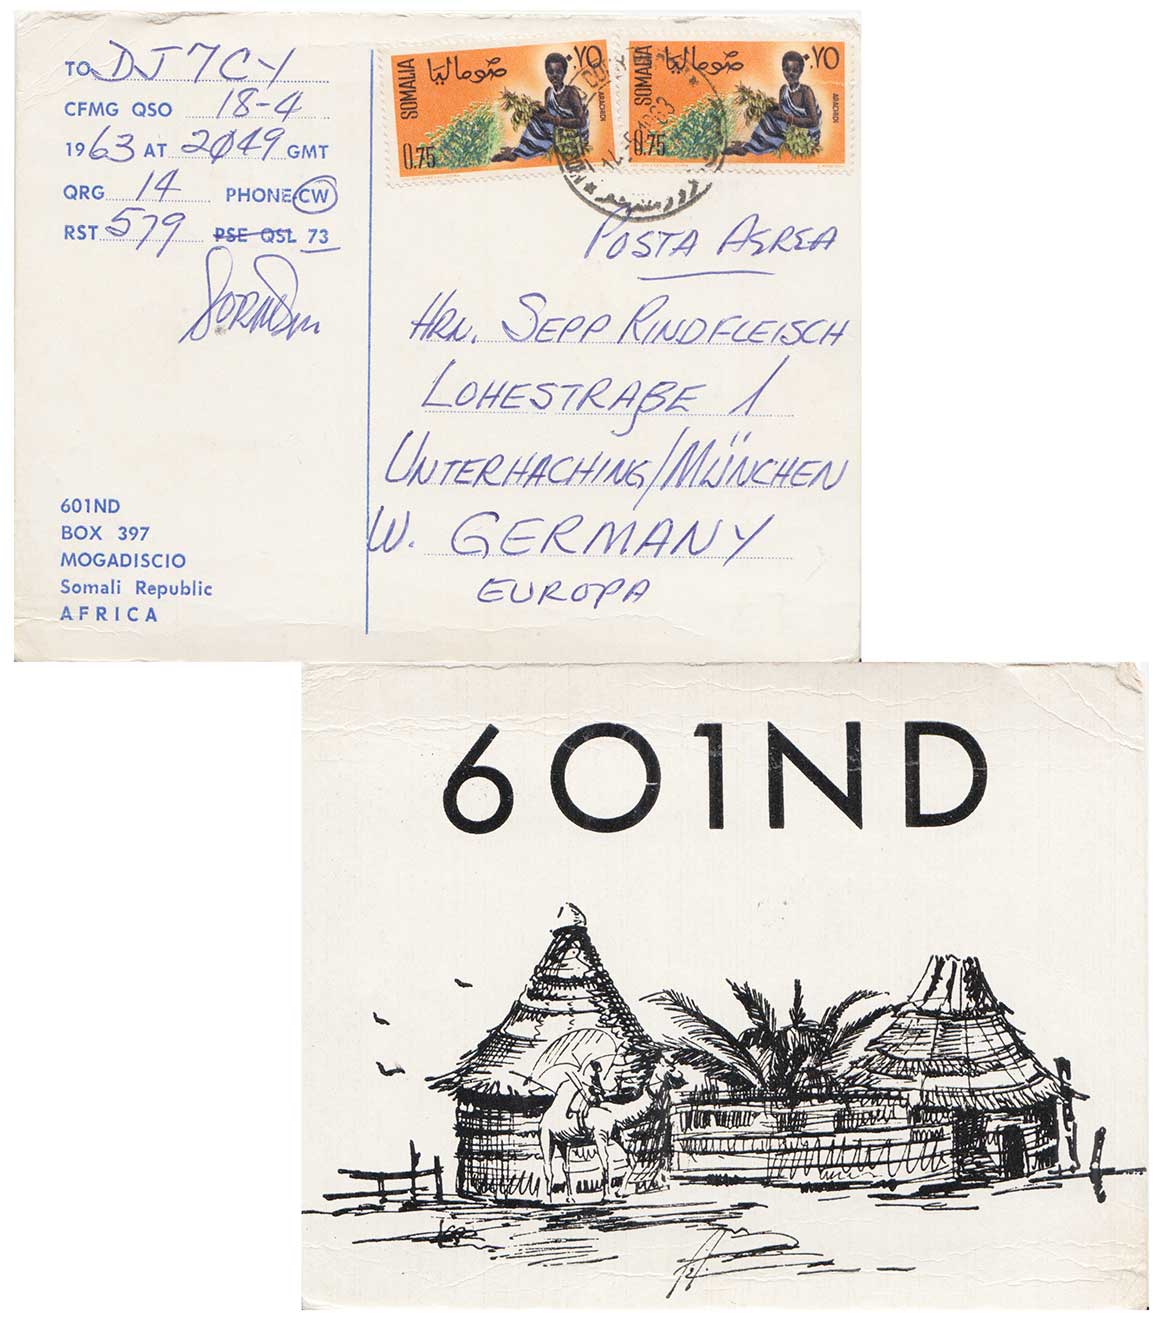 TO DJ7CY
CFMG QSO 18-4
1963 AT 2Ø49 GMT
QRG 14 PHONE-CW
RST 579 PSE QSL 73
601ND
BOX 397
MOGADISCIO
Somali Republic
AFRICA
SOMALIA صوماليا ٠٧٥
0.75 ABACADI
SOMALIA صوماليا ٠٧٥
0.75 ABACADI
POSTA AEREA
HRN. SEPP RINDFLEISCH
LOHESTRAßE 1
UNTERHACHING/MÜNCHEN
W. GERMANY
EUROPA
601ND